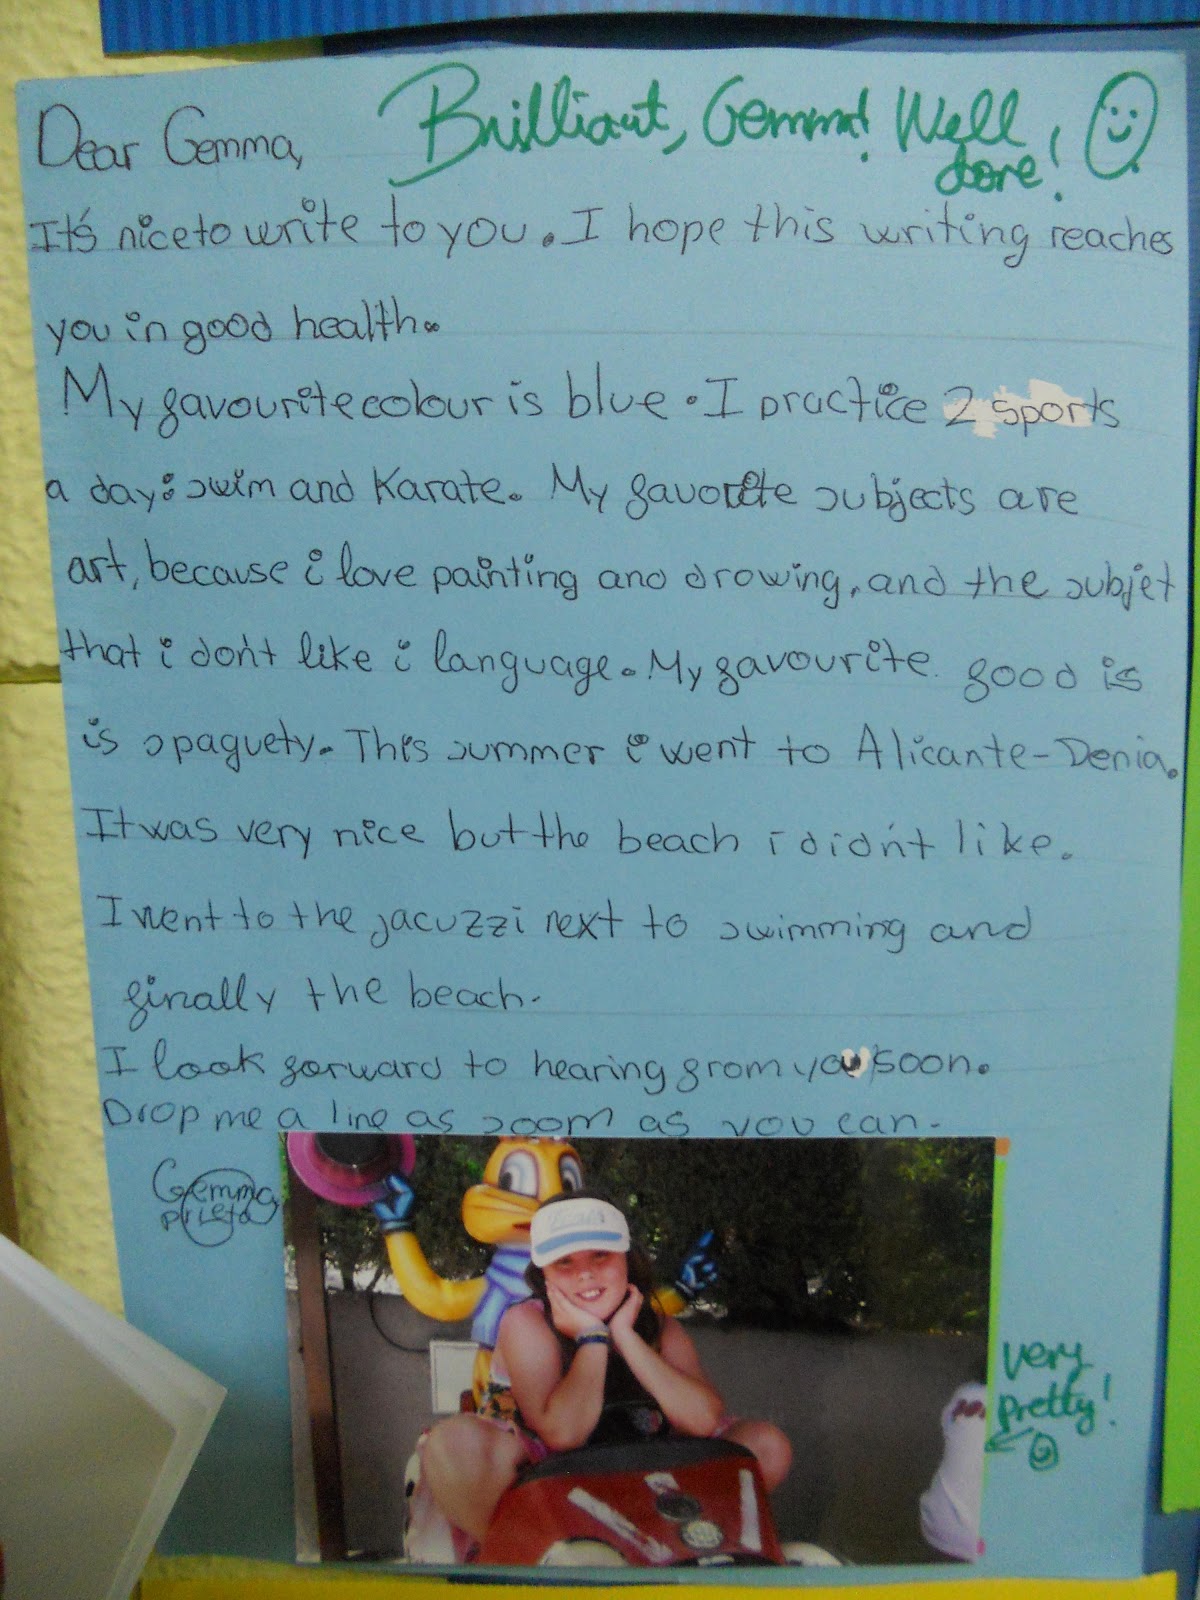 Dear Gemma,
Brilliant, Gemma! Well done!
It's nice to write to you. I hope this writing reaches
you in good health.
My favourite colour is blue. I practice 2 sports
a day: swim and Karate. My favorite subjects are
art, because i love painting and drowing, and the subjet
that i don't like i language. My favourite food is
is spaguety. This summer i went to Alicante-Denia.
It was very nice but the beach i didn't like.
I went to the jacuzzi next to swimming and
finally the beach.
I look forward to hearing from you soon.
Drop me a line as soom as you can.
Gemma
prieto
very
pretty!